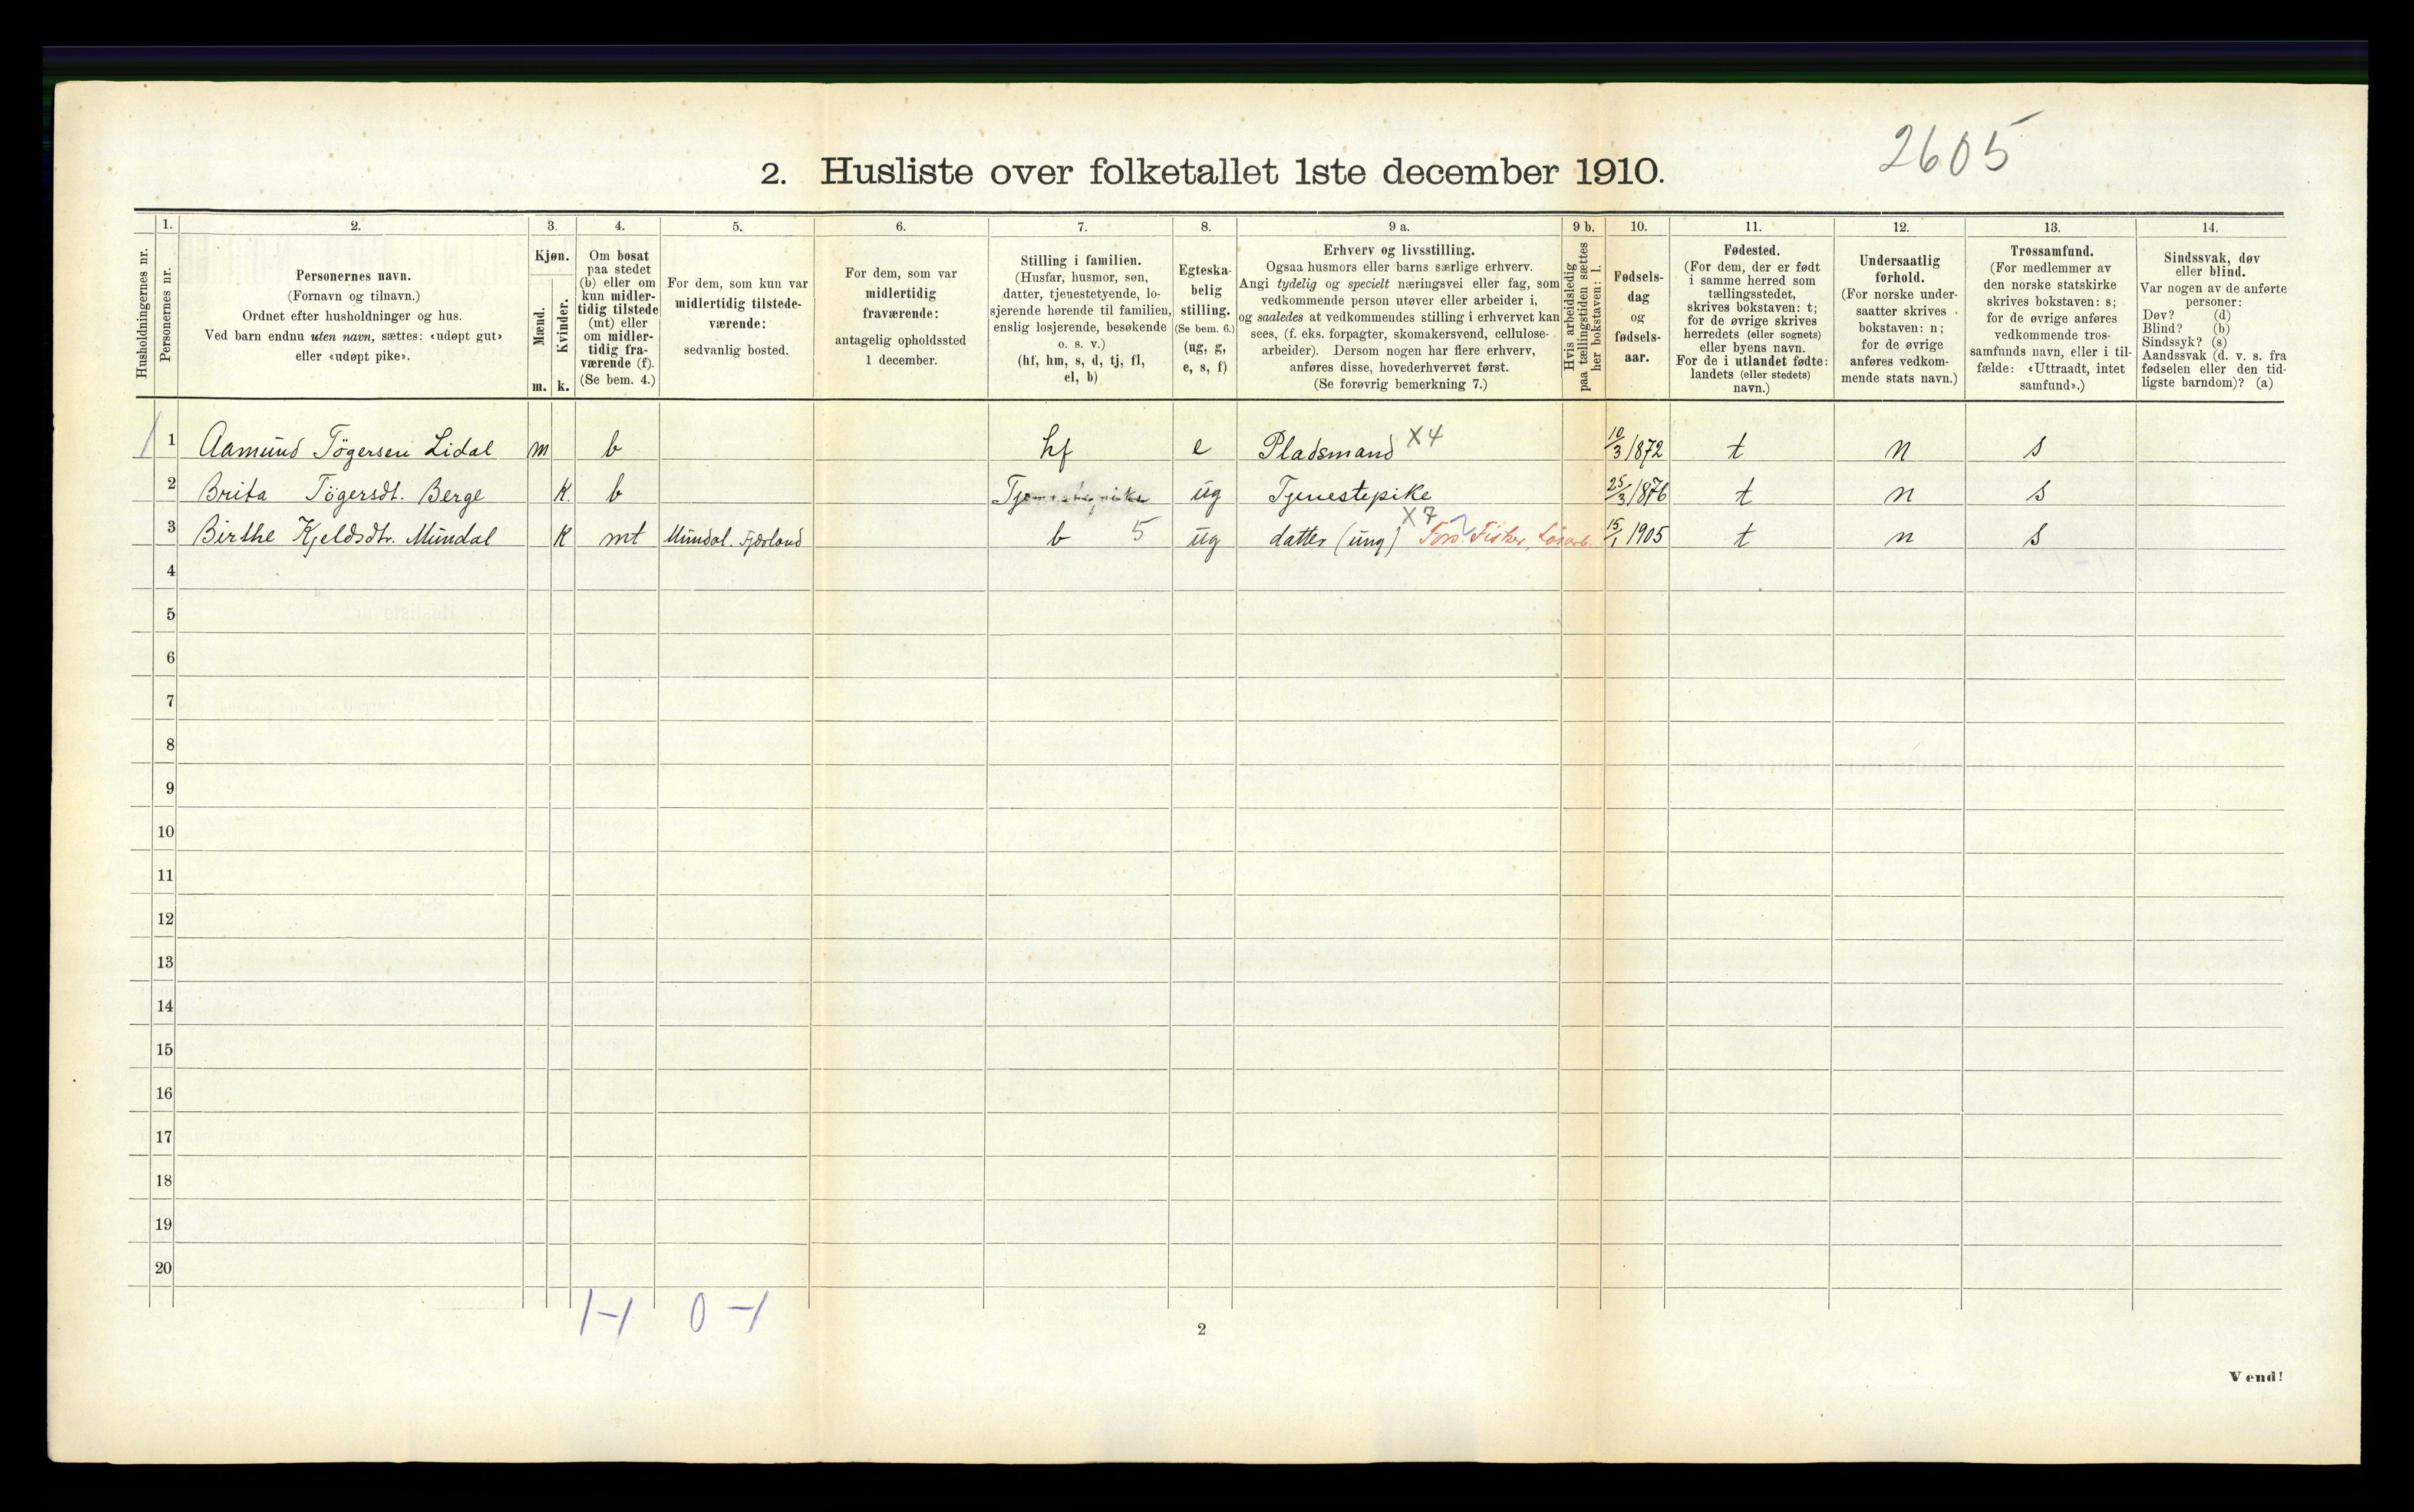 2605
2. Husliste over folketallet 1ste december 1910.
Husholdningernes nr.
1.
Personernes nr.
2.
Personernes navn.
(Fornavn og tilnavn.)
Ordnet efter husholdninger og hus.
Ved barn endnu uten navn, sættes: «udøpt gut»
eller «udøpt pike».
3.
Kjøn.
Mænd.
Kvinder.
m. k.
4.
Om bosat
paa stedet
(b) eller om
kun midler-
tidig tilstede
(mt) eller
om midler-
tidig fra-
værende (f).
(Se bem. 4.)
5.
For dem, som kun var
midlertidig tilstede-
værende:
sedvanlig bosted.
6.
For dem, som var
midlertidig
fraværende:
antagelig opholdssted
1 december.
7.
Stilling i familien.
(Husfar, husmor, søn,
datter, tjenestetyende, lo-
sjerende hørende til familien,
enslig losjerende, besøkende
o. s. v.)
(hf, hm, s, d, tj, fl,
el, b)
8.
Egteska-
belig
stilling.
(Se bem. 6.)
(ug, g,
e, s, f)
9 a.
Erhverv og livsstilling.
Ogsaa husmors eller barns særlige erhverv.
Angi tydelig og specielt næringsvei eller fag, som
vedkommende person utøver eller arbeider i,
og saaledes at vedkommendes stilling i erhvervet kan
sees, (f. eks. forpagter, skomakersvend, cellulose-
arbeider). Dersom nogen har flere erhverv,
anføres disse, hovederhvervet først.
(Se forøvrig bemerkning 7.)
9 b.
Hvis arbeidsledig
paa tællingstiden sættes
her bokstaven: l.
10.
Fødsels-
dag
og
fødsels-
aar.
11.
Fødested.
(For dem, der er født
i samme herred som
tællingsstedet,
skrives bokstaven: t;
for de øvrige skrives
herredets (eller sognets)
eller byens navn.
For de i utlandet fødte:
landets (eller stedets)
navn.)
12.
Undersaatlig
forhold.
(For norske under-
saatter skrives
bokstaven: n;
for de øvrige
anføres vedkom-
mende stats navn.)
13.
Trossamfund.
(For medlemmer av
den norske statskirke
skrives bokstaven: s;
for de øvrige anføres
vedkommende tros-
samfunds navn, eller i til-
fælde: «Uttraadt, intet
samfund».)
14.
Sindssvak, døv
eller blind.
Var nogen av de anførte
personer:
Døv? (d)
Blind? (b)
Sindssyk? (s)
Aandssvak (d. v. s. fra
fødselen eller den tid-
ligste barndom)? (a)
1 1 Aamund Tøgersen Lidal m b hf e Pladsmand X4 10/3 1872 t n s
2 Brita Tøgersdt. Berge K. b Tjenestepike ug Tjenestepike 25/3 1876 t n s
3 Birthe Kjeldsdtr. Mundal K mt Mundal. Fjærland b 5 ug datter (ung) X7 Fors. Fisker, Løsarb. 15/1 1905 t n s
4
5
6
7
8
9
10
11
12
13
14
15
16
17
18
19
20
1-1 0-1
2
Vend!